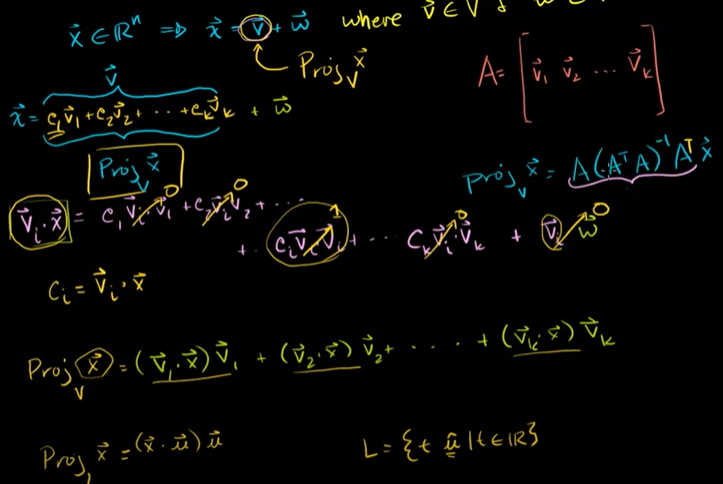 x⃗ ∈ ℝⁿ ⇒ x⃗ = v⃗ + w⃗ where v⃗ ∈ V &
Proj_V x⃗
A = [v⃗₁ v⃗₂ ... v⃗ₖ]
v⃗
x⃗ = c₁v⃗₁ + c₂v⃗₂ + ... + cₖv⃗ₖ + w⃗
Proj_V x⃗
Proj_V x⃗ = A(AᵀA)⁻¹Aᵀx⃗
v⃗ᵢ · x⃗ = c₁v⃗ᵢ·v⃗₁ 0 + c₂v⃗ᵢ·v⃗₂ 0 + ...
+ cᵢv⃗ᵢ·v⃗ᵢ 1 + ... cₖv⃗ᵢ·v⃗ₖ 0 + v⃗ᵢ·w⃗ 0
cᵢ = v⃗ᵢ · x⃗
Proj_V x⃗ = (v⃗₁·x⃗)v⃗₁ + (v⃗₂·x⃗)v⃗₂ + .... + (v⃗ₖ·x⃗)v⃗ₖ
Proj_L x⃗ = (x⃗ · u⃗)u⃗
L = {t û | t ∈ ℝ}